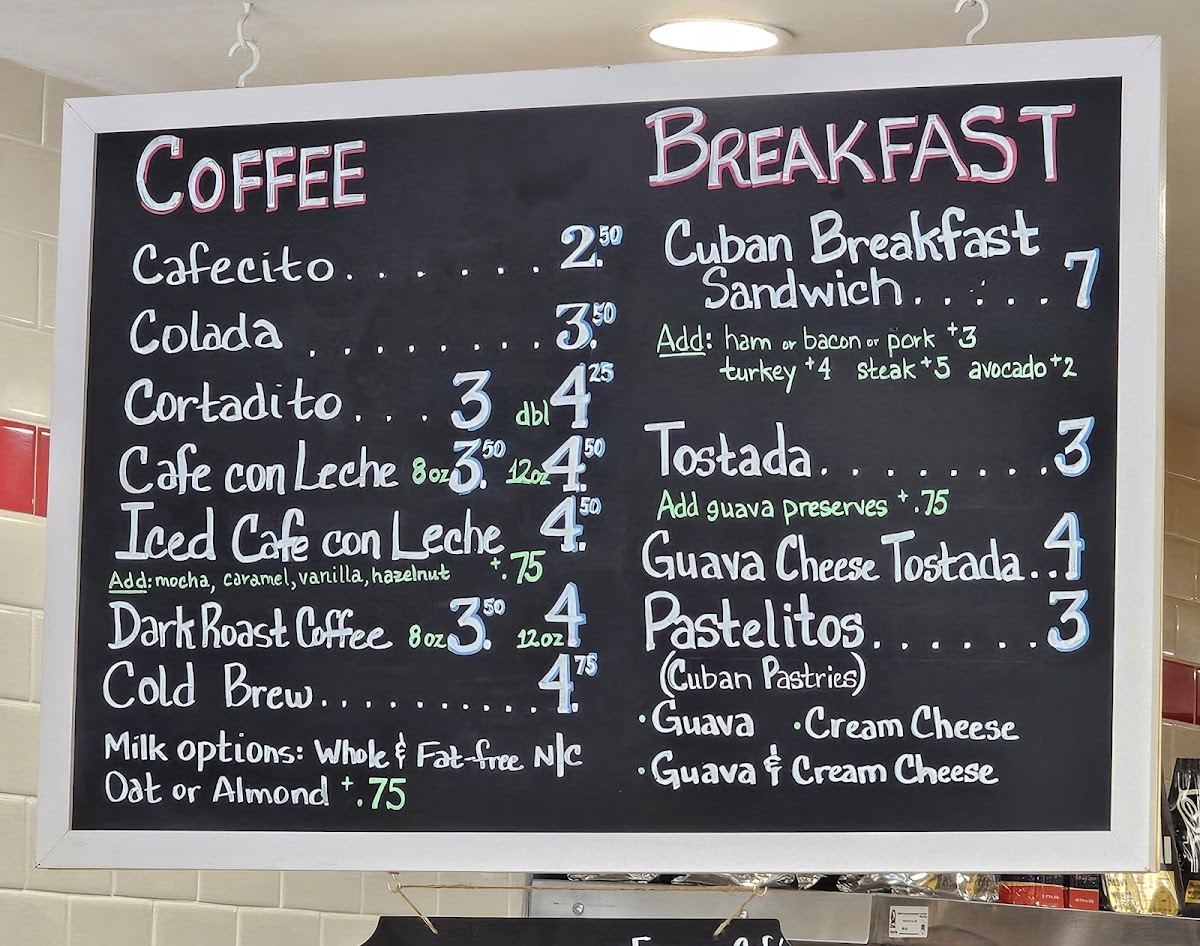 COFFEE
Cafecito . . . . . . . 2.50
Colada . . . . . . . . . 3.50
Cortadito . . . 3 dbl 4.25
Cafe con Leche 8oz 3.50 12oz 4.50
Iced Cafe con Leche 4.50
Add: mocha, caramel, vanilla, hazelnut +.75
Dark Roast Coffee 8oz 3.50 12oz 4
Cold Brew . . . . . . . . . . 4.75
Milk options: Whole & Fat-free N/C
Oat or Almond +.75
BREAKFAST
Cuban Breakfast
Sandwich . . . . . 7
Add: ham or bacon or pork +3
turkey +4 steak +5 avocado +2
Tostada . . . . . . . . 3
Add guava preserves +.75
Guava Cheese Tostada . . 4
Pastelitos . . . . . . 3
(Cuban Pastries)
• Guava • Cream Cheese
• Guava & Cream Cheese